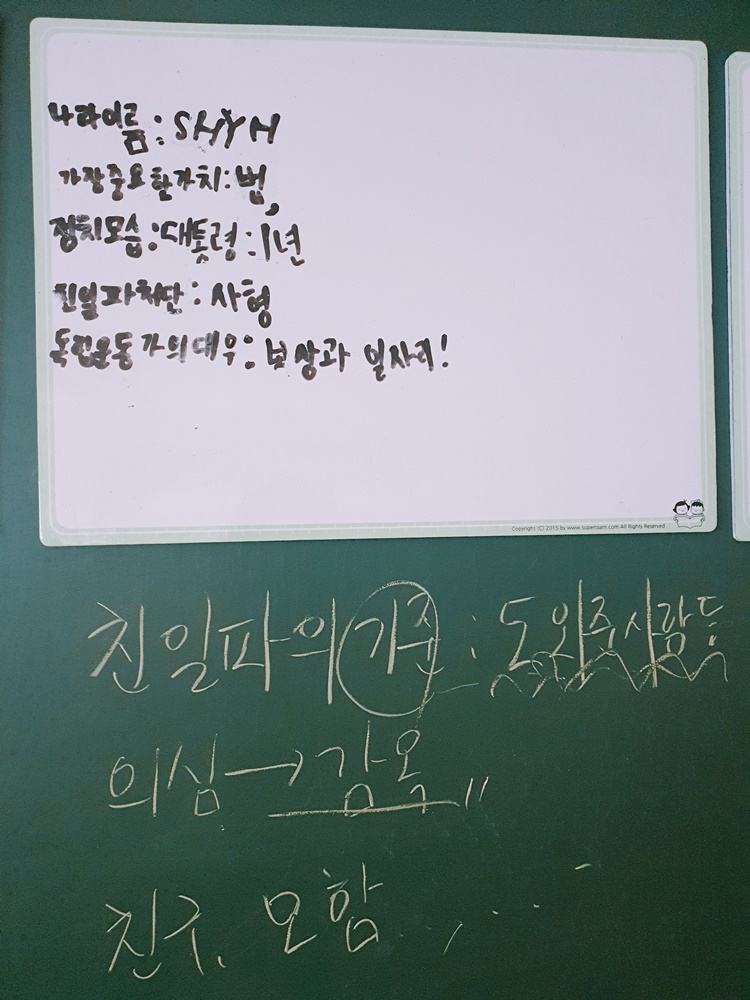 나라이름: SHYH
가장중요한가치: 법,
정치모습: 대통령: 1년
친일파처단: 사형
독립운동가의대우: 보상과 일자리!
Copyright (C) 2015 by www.supersam.com All Rights Reserved
친일파의 가족: 도와준사람들
의심→감옥"
친구, 모함......